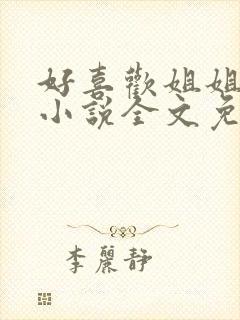 好喜歡姐姐
小說全文免
李麗靜